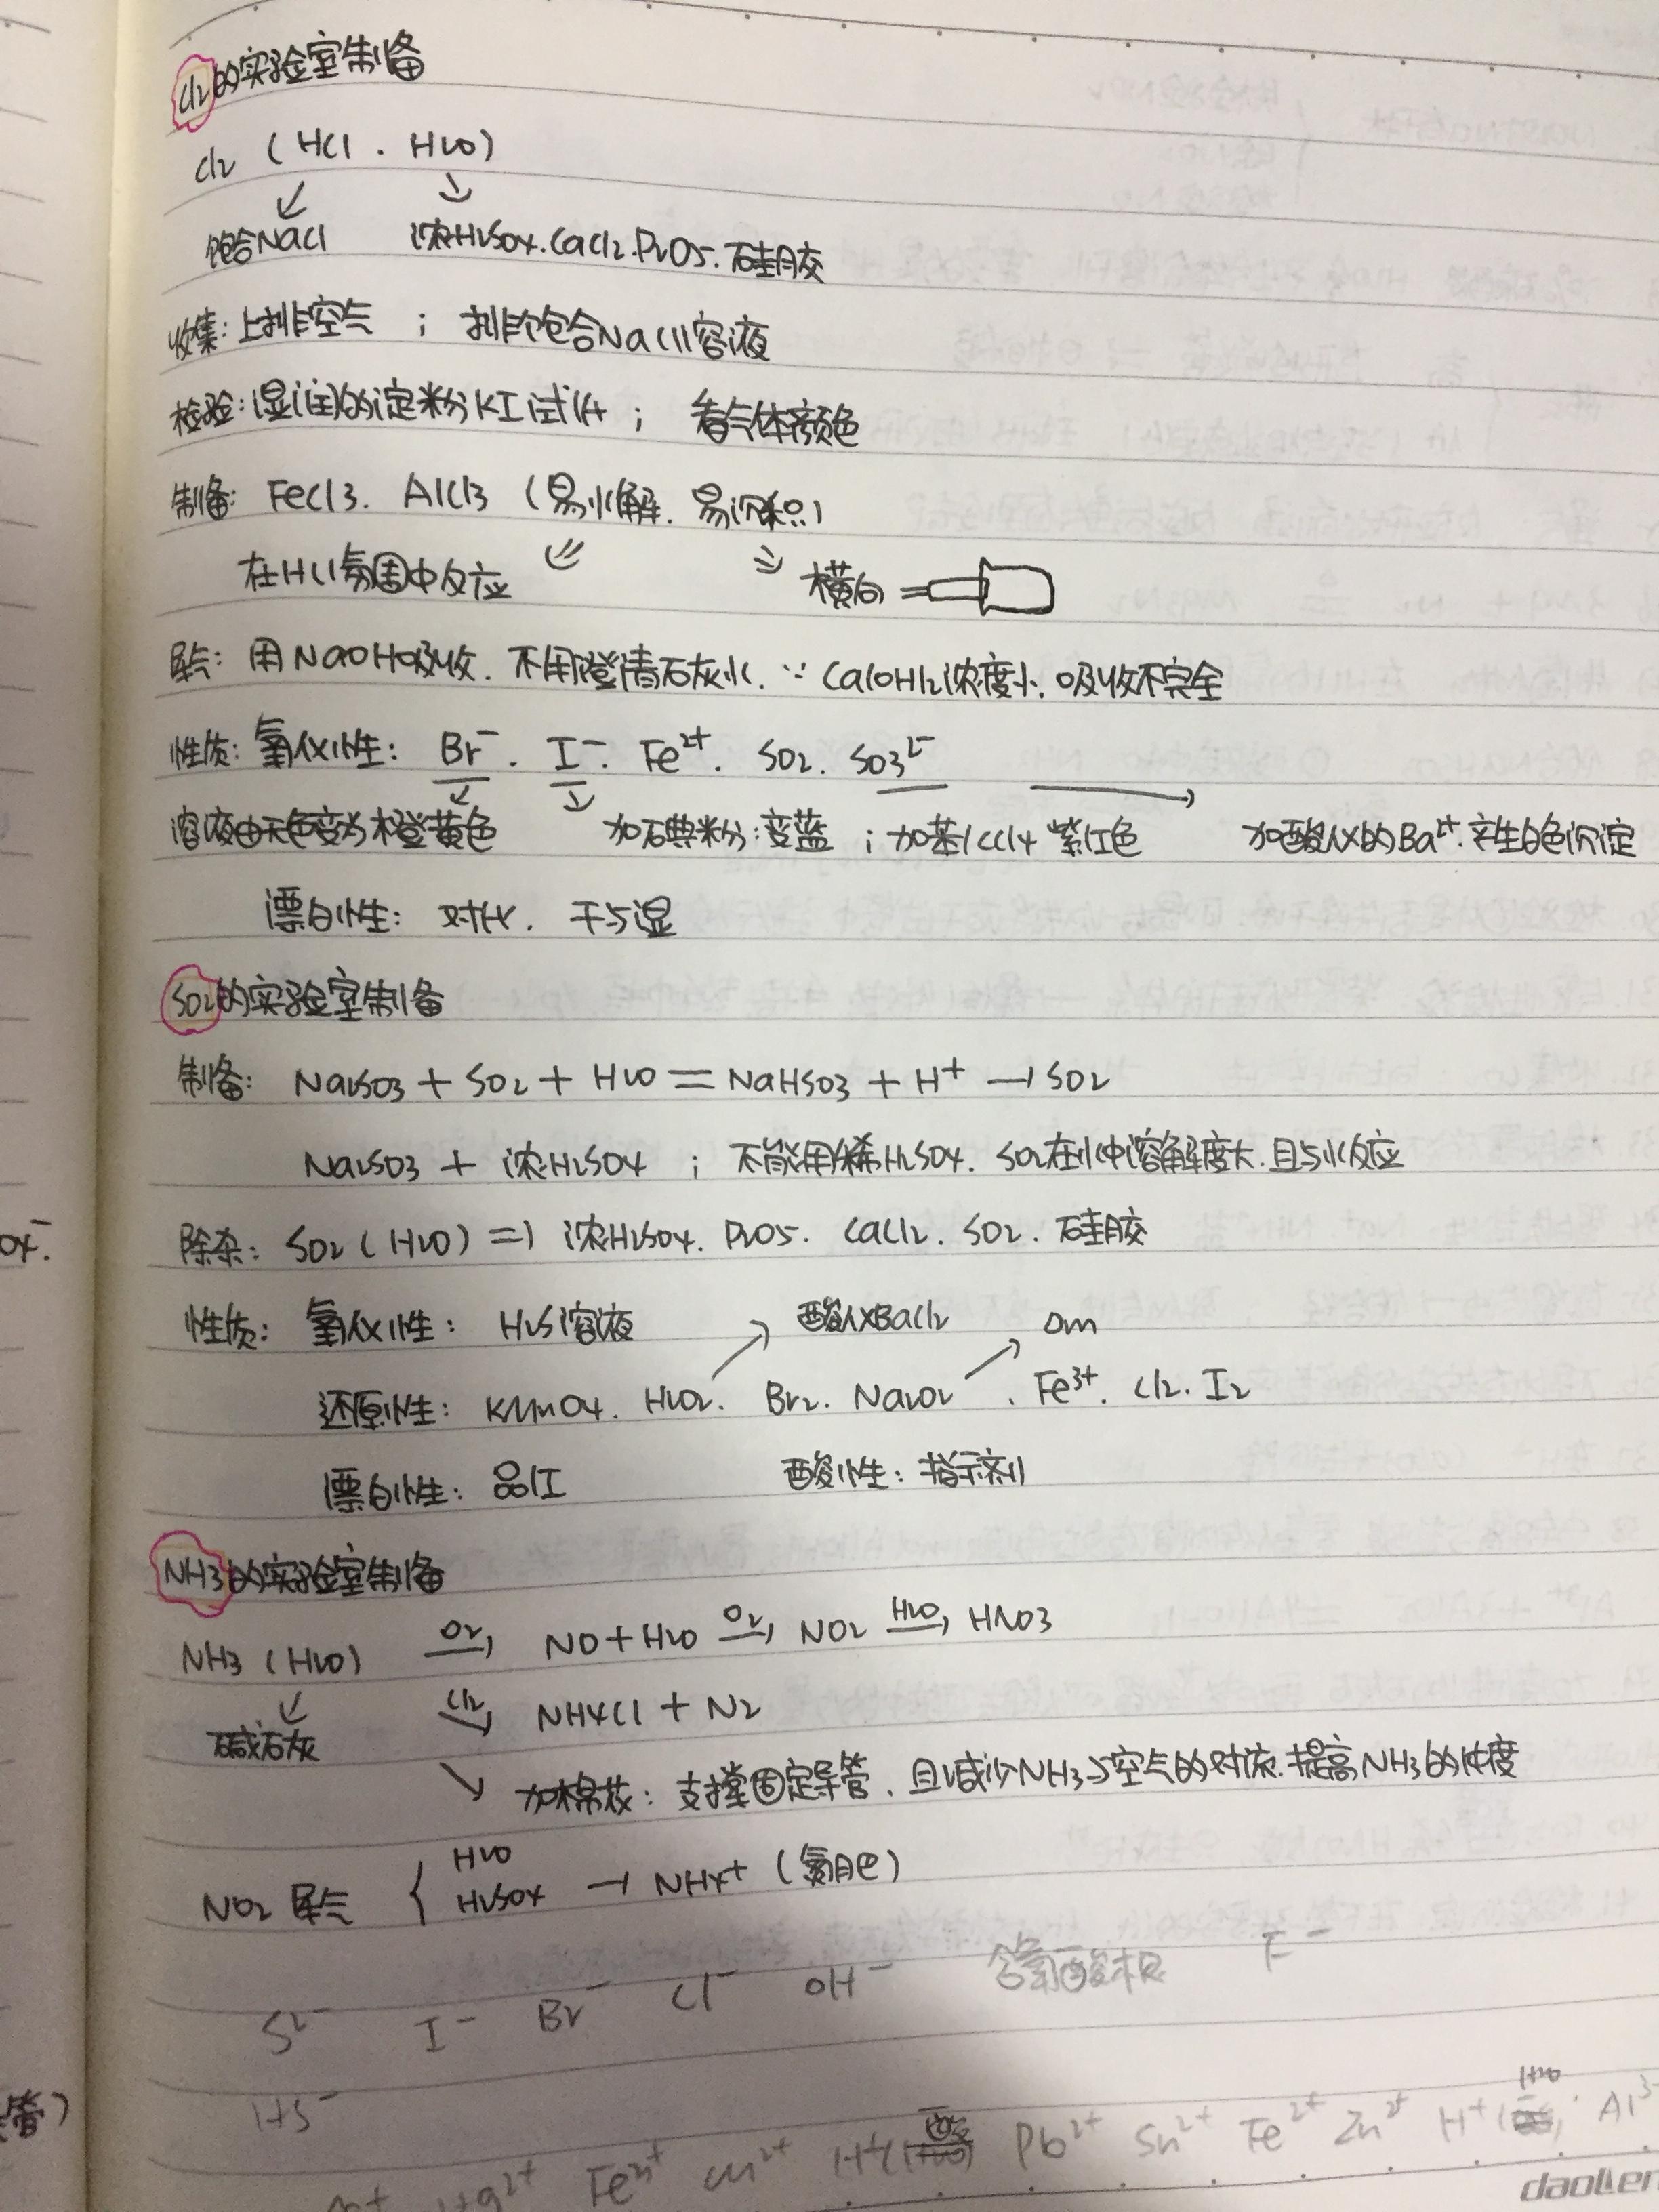 Cl2的实验室制备
Cl2 (HCl . H2O)
饱合NaCl 浓H2SO4.CaCl2.P2O5.硅胶
收集: 上排空气 ; 排饱合NaCl溶液
检验: 湿润的淀粉KI试纸 ; 看气体颜色
制备: FeCl3. AlCl3 (易水解. 易沉积)
在HCl氛围中反应 横向
尾气: 用NaOH吸收. 不用澄清石灰水. ∵ Ca(OH)2浓度小. 吸收不完全
性质: 氧化性: Br⁻ . I⁻. Fe²⁺. SO2. SO3²⁻
溶液由无色变为橙黄色 加淀粉: 变蓝 ; 加苯/CCl4 紫红色 加酸化的Ba²⁺. 产生白色沉淀
漂白性: 对比. 干与湿
SO2的实验室制备
制备: Na2SO3 + SO2 + H2O = NaHSO3 + H⁺ → SO2
Na2SO3 + 浓H2SO4 ; 不能用稀H2SO4. SO2在水中溶解度大. 且与水反应
除杂: SO2 (H2O) ⇒ 浓H2SO4. P2O5. CaCl2. SO2. 硅胶
性质: 氧化性: H2S溶液 酸化BaCl2
还原性: KMnO4. H2O2. Br2. Na2O2 . Fe³⁺. Cl2. I2
漂白性: 品红 酸性: 指示剂
NH3的实验室制备
NH3 (H2O) O2→ NO + H2O O2→ NO2 H2O→ HNO3
碱石灰 Cl2 NH4Cl + N2
加棉花: 支撑固定导管. 且减少NH3与空气的对流. 提高NH3的纯度
NO2 尾气 { H2O
H2SO4 → NH4⁺ (氮肥)
S²⁻ I⁻ Br⁻ Cl⁻ OH⁻ 含氧酸根 F⁻
HS⁻
Hg²⁺ Fe³⁺ Cu²⁺ H⁺(酸) Pb²⁺ Sn²⁺ Fe²⁺ Zn²⁺ H⁺(H2O) Al³⁺
O4⁻.
管)